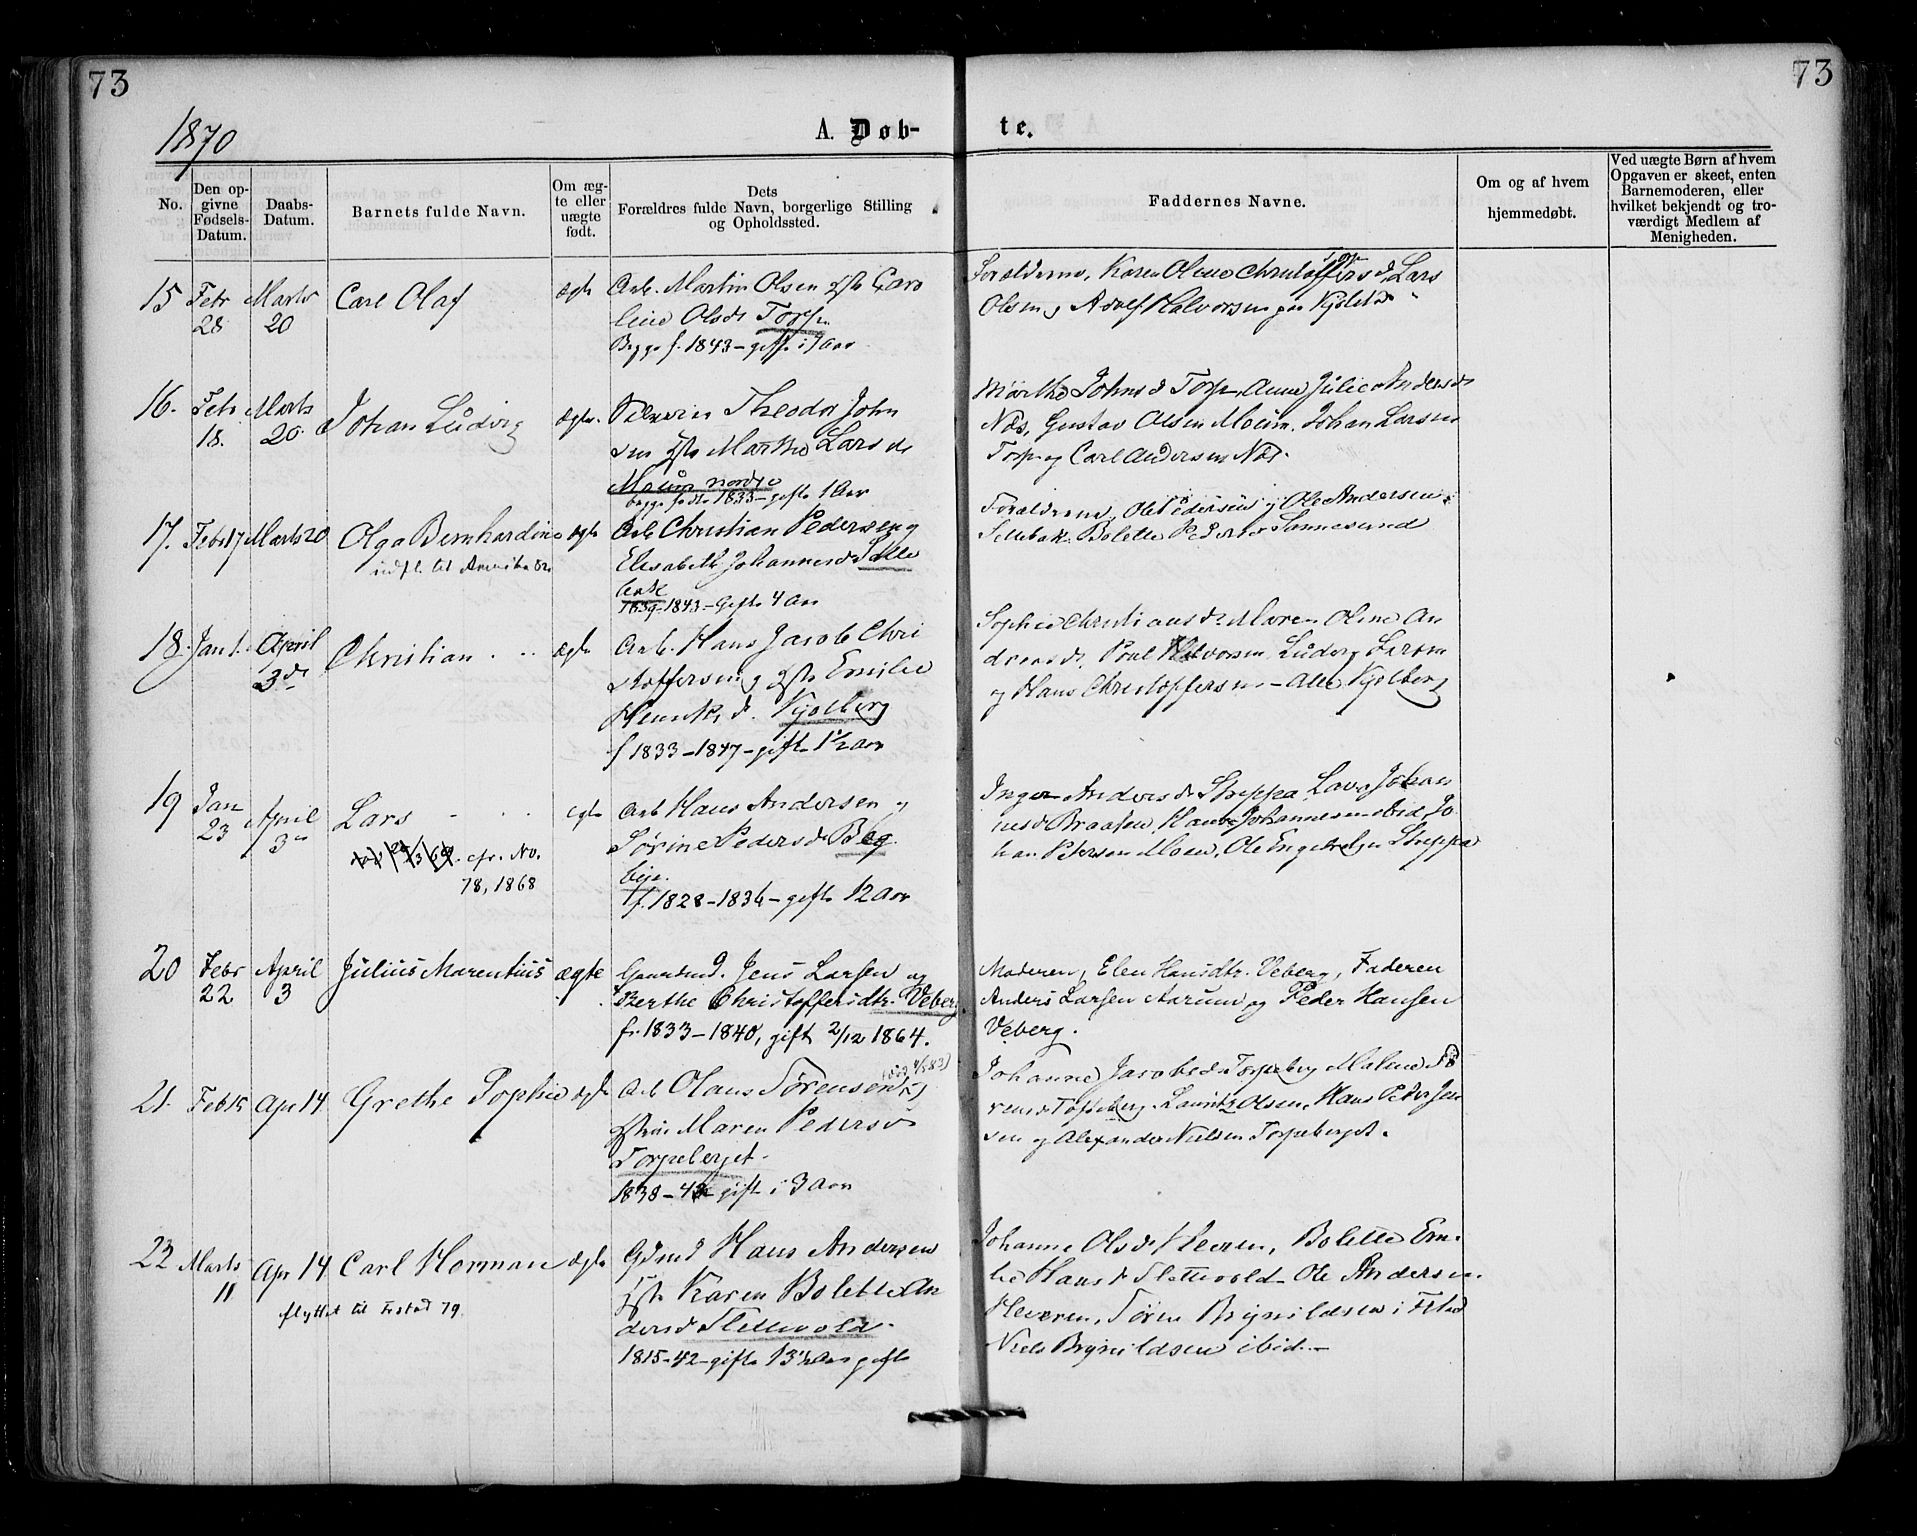 73
73
1870
A. Døb-
te.
No.
Den op-
givne
Fødsels-
Datum.
Daabs-
Datum.
Barnets fulde Navn.
Om æg-
te eller
uægte
født.
Dets
Forældres fulde Navn, borgerlige Stilling
og Opholdssted.
Faddernes Navne.
Om og af hvem
hjemmedøbt.
Ved uægte Børn af hvem
Opgaven er skeet, enten
Barnemoderen, eller
hvilket bekjendt og tro-
værdigt Medlem af
Menigheden.
15 Febr 28 Marts 20 Carl Olaf ægte
Arb. Martin Olsen Caro
line Olsdr Torp.
Begge f. 1843 – gifte i Aar
Forældrene, Karen Oline Christoffersd, Lars
Olsen, Adolf Halvorsen paa
16. Febr 18. Marts 20. Johan Ludvig ægte.
Theodor John
sen Marthe Larsdr
Moum nordre
begge fødte 1833 – gifte 1 Aar
Marthe Johnsd Torp, Anne Julie Andersdr
Næs, Gustav Olsen Moum, Johan Larsen
Torp og Carl Andersen Næs.
17. Feb 17 Marts 20 Olga Bernhardine ægte
udfl. til Amerika
Arb Christian Pedersen og
Elisabeth Johannesdr Selle
bak
1839–1843 – Gifte 4 Aar
Forældrene, Ole Pedersen, Ole Andersen
Sellebak Bolette Pedersdr Sannesund
18. Jan 1. April 3de Christian. ægte
Arb. Hans Jacob Chri
stoffersen og Emilie
Henriks. d. Kjølberg
f 1833–1847 – gifte 1½ Aar
Sophie Christiansdr Maren Oline An
dreasdr. Poul Halvorsen, Ludvig Larsen
og Hans Christoffersen – Alle Kjølberg
19 Jan 23 April 3 Lars ægte
cfr. No.
78, 1868
Arb Hans Andersen og
Sørine Pedersdr Beg
beje.
f. 1828–1836 – gifte 12 Aar
Inger Andersdr Johan
nesd Braaten, Hans Johannesen ibid, Jo
han Petersen Moen, Ole
20 Febr 22 April 3 Julius Marentius ægte
Gaardmd. Jens Larsen og
Berthe Christoffersdtr. Veberg
fr. 1833–1840, gift 2/12 1864.
Moderen, Elen Hansdtr. Veberg, Faderen
Anders Larsen Aarum og Peder Hansen
Veberg.
21. Feb 15 Apr 14 Grethe Sophie ægte
Arb Olaus Sørensen og
Maren Pedersd
Torpeberget.
1838–42 gift i 3 Aar
Johanne Jacobsd Torpeberg Malene Sø
rensd Torpeberg. Lauritz Olsen, Hans Peder Jen
sen og Alexander Nielsen Torpeberget.
22 Marts 11 Apr 14 Carl Herman ægte
flyttet til Frstad 79.
Gdmd Hans Andersen
Karen Bolette An
dersd Slettevold.
1815–42 – gifte 13½ Aar gifte
Johanne Olsdr Heeren, Bolette Em-
lie Hansd Slettevold – Ole Andersen
Heeren, Søren Brynildsen i Fstad
Niels Brynildsen ibid. –